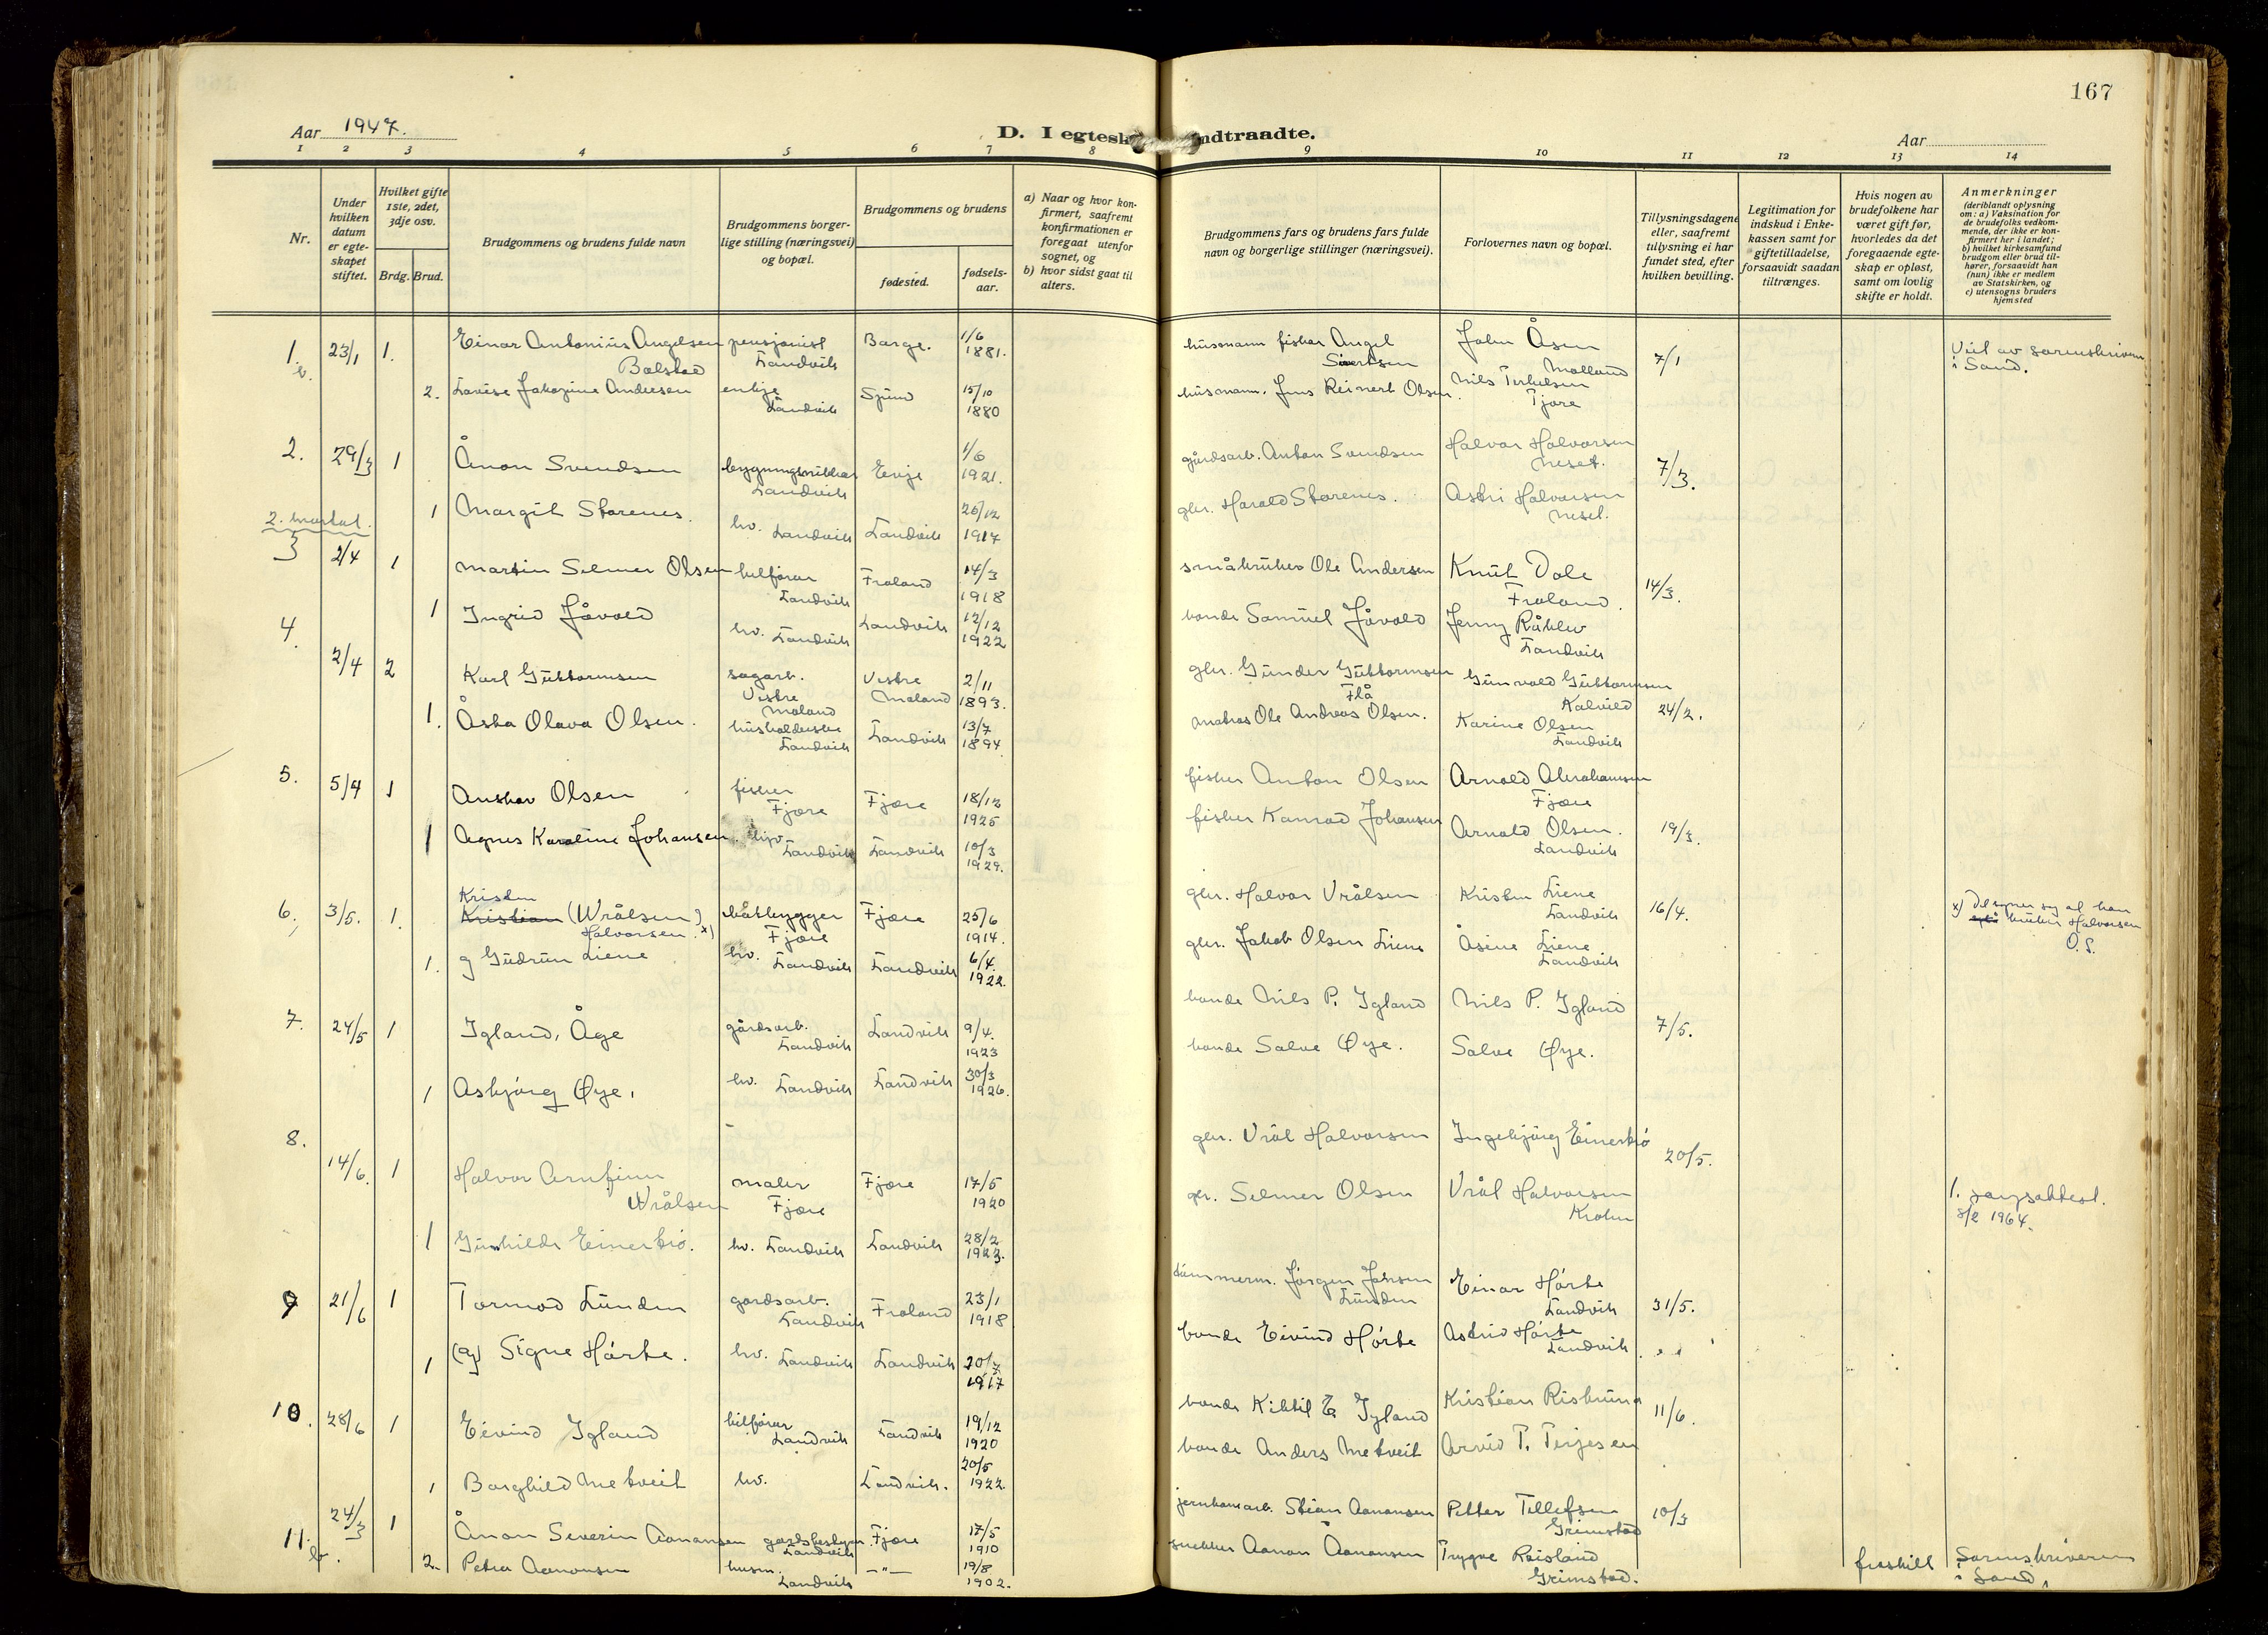 167
Aar 1947.
D. I egtesk
ndtraadte.
Aar
1 2 3 4 5 6 7 8 9 10 11 12 13 14
Nr.
Under hvilken datum er egteskapet stiftet.
Hvilket gifte 1ste, 2det, 3dje osv.
Brdg. Brud.
Brudgommens og brudens fulde navn
Brudgommens borgerlige stilling (næringsvei) og bopæl.
Brudgommens og brudens
fødested.
fødselsaar.
a) Naar og hvor konfirmert, saafremt konfirmationen er foregaat utenfor sognet, og
b) hvor sidst gaat til alters.
Brudgommens fars og brudens fars fulde navn og borgerlige stillinger (næringsvei).
Forlovernes navn og bopæl.
Tillysningsdagene eller, saafremt tillysning ei har fundet sted, efter hvilken bevilling.
Legitimation for indskud i Enkekassen samt for giftetilladelse, forsaavidt saadan tiltrænges.
Hvis nogen av brudefolkene har været gift før, hvorledes da det foregaaende egteskap er opløst, samt om lovlig skifte er holdt.
Anmerkninger
(deriblandt oplysning om: a) Vaksination for de brudefolks vedkommende, der ikke er konfirmert her i landet;
b) hvilket kirkesamfund brudgom eller brud tilhører, forsaavidt han (hun) ikke er medlem av Statskirken, og
c) utensogns bruders hjemsted
1. b. 23/1 1. Einar Antonius Angelsen Bolstad pensjonist Landvik Barge. 1/6 1881. husmann fisker Angel Sivertsen John Åsen Molland 7/1 Viet av sorenskriveren i Sand.
2. Lovise Jakozine Andersen enkje Landvik 15/10 1880 husmann. Jens Reinert Olsen. Nils Terkelsen Fjære
2. 29/3 1 Ånon Svendsen bygningsnikkar Landvik Evje 1/6 1921. gårdsarb. Anton Svendsen Halvor Halvorsen Neset. 7/3.
1 Margit Starenes. hv. Landvik Landvik 26/12 1917 gbr. Harald Starenes. Astri Halvorsen Neset.
3 2/4 1 Martin Selmer Olsen bilførar Landvik Froland 14/3 1918 småbruker Ole Andersen Knut Dale Froland. 14/3.
1 Ingrid Jåvold hv. Landvik Landvik 12/12 1922 bonde Samuel Jåvold Jenny Råklev Landvik
4. 2/4 2 Karl Guttormsen sagarb. Vestre Moland Vestre Moland 2/11 1893. gbr. Gunder Guttormsen Flå Gunvald Guttormsen Kalvild 24/2.
1. Åsta Olava Olsen. husholderske Landvik Landvik 13/7 1894 matros Ole Andreas Olsen. Karine Olsen Landvik
5. 5/4 1 Anskar Olsen fisker Fjære Fjære 18/12 1925 fisker Anton Olsen Arnold Abrahamsen Fjære 19/3.
1 Agnes Karoline Johansen. Landvik Landvik 10/3 1929. fisker Konrad Johansen Arnold Olsen. Landvik
6. 3/5. 1. Kristen Kristian (Wrålsen) Halvorsen. x) båtbygger Fjære Fjære 25/6 1914. gbr. Halvor Vrålsen Kristen Liene Landvik 16/4. x) Det syner seg at han bruker Halvorsen O.S.
1. g Gudrun Liene hv. Landvik Landvik 6/4. 1922. gbr. Jakob Olsen Liene Åsine Liene Landvik
7. 24/5 1 Igland, Åge gårdsarb. Landvik Landvik 9/4. 1923 bonde Nils P. Igland Nils P. Igland 7/5.
1 Asbjørg Øye, hv. Landvik Landvik 30/3 1926. bonde Salve Øye. Salve Øye.
8. 14/6. 1 Halvor Arnfinn Wrålsen maler Fjære Fjære 17/5 1920 gbr. Vrål Halvorsen Ingebjørg Einerkiø 20/5.
1 Gunhilde Einerkiø. hv. Landvik Landvik 28/2 1923. gbr. Selmer Olsen Vrål Halvorsen 1. 8/2 1964.
9 21/6 1 Tormod Lunden gardsarb. Landvik Froland 23/1 1918 tømmerm. Jørgen Jensen Lunden Einar Hørte Landvik 31/5.
1 (g) Signe Hørte. hv. Landvik Landvik 20/7 1917 bonde Eivind Hørte Astrid Hørte Landvik.
10. 28/6 1 Eivind Igland bilførar Landvik Landvik 19/12 1920 bonde Kittil E. Igland Kristian Risbruna 11/6.
1 Borghild Metveit hv. Landvik. 20/5 1922. bonde Anders Metveit Arvid T. Terjesen
11. b. 24/3 1 Ånon Severin Aanonsen gardsbestyrer Landvik Fjære 17/5 1910 jernbanearb. Stian Aanonsen Petter Tellefsen Grimstad 10/3
2. Petra Aanonsen husm. Landvik —"— 19/8 1902. snekker Aanon Aanonsen Trygve Roisland Grimstad. fraskilt Sorenskriveren i Sand.